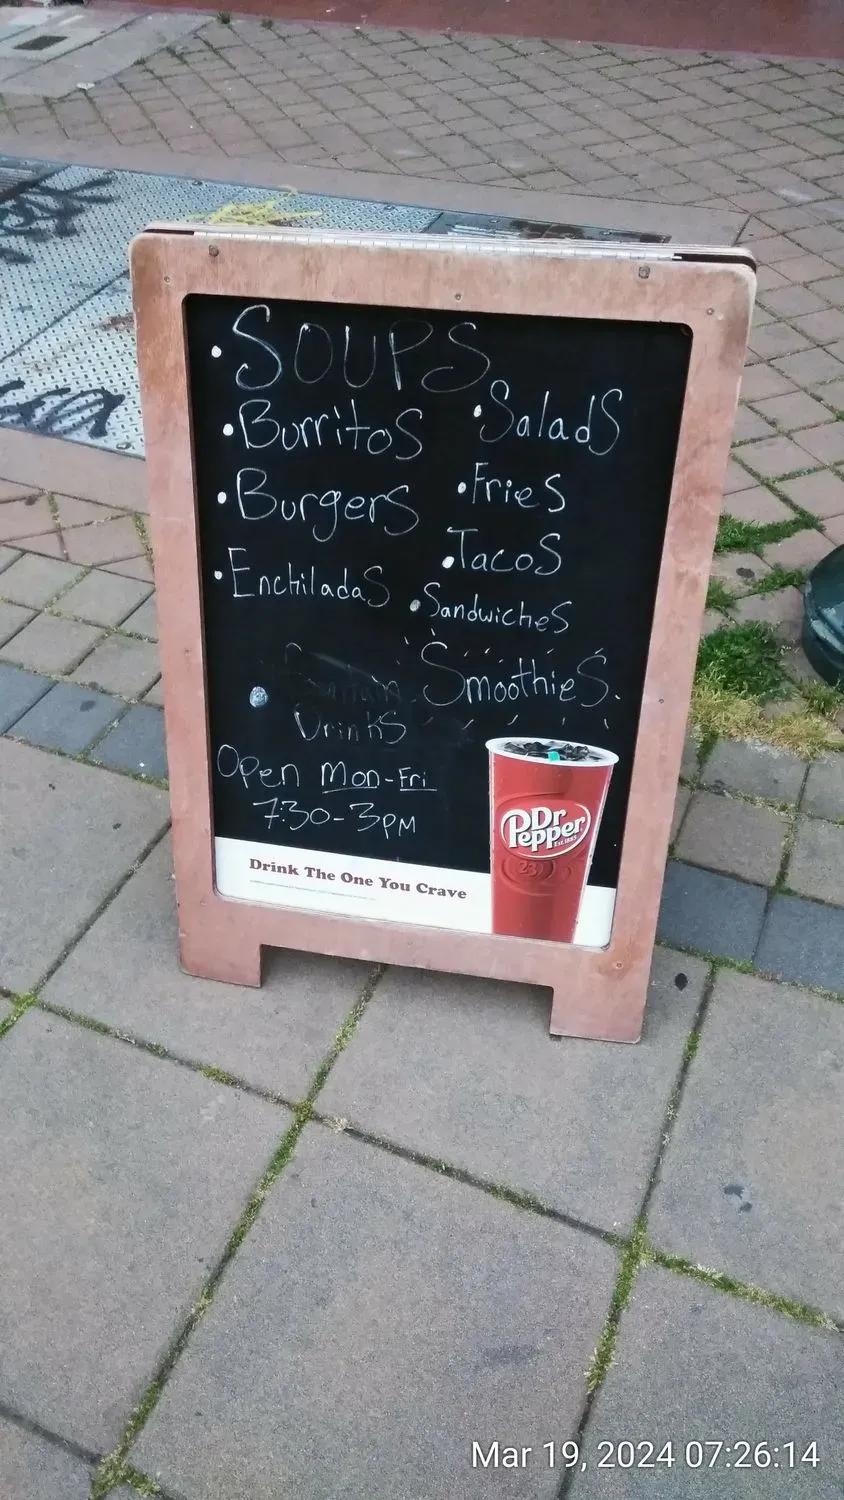 • SOUPS
• Burritos
• Salads
• Burgers
• Fries
• Enchiladas
• Tacos
• Sandwiches
• Fountain Drinks
Smoothies.
Open Mon-Fri
7:30-3PM
Drink The One You Crave
Dr Pepper
Est. 1885
23
Mar 19, 2024 07:26:14